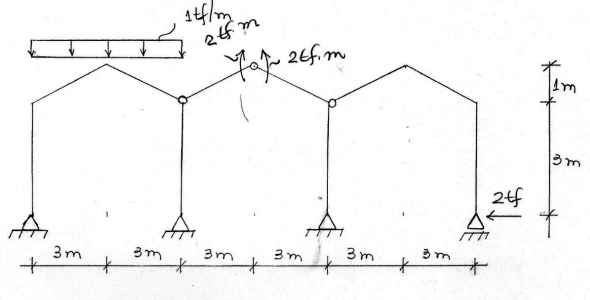 1tf/m
2tf m
2tf.m
1m
3m
2tf
3m 3m 3m 3m 3m 3m